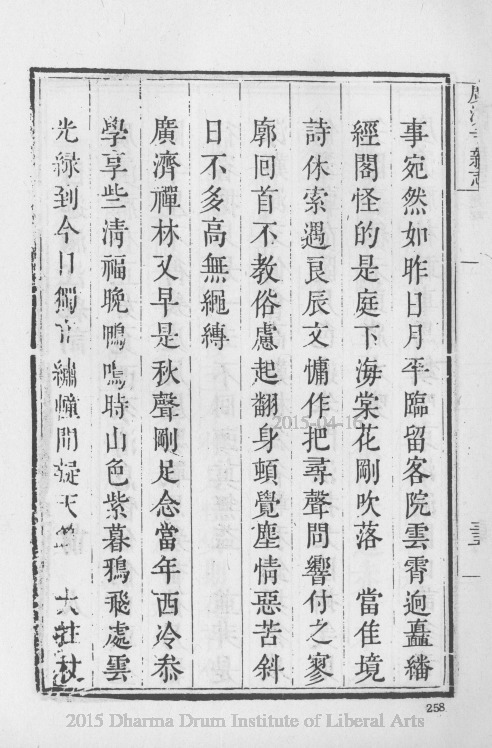 事宛然如昨日月平臨留客院雲霄逈矗繙
經閣怪的是庭下海棠花剛吹落 當佳境
詩休索遇良辰文慵作把尋聲問響付之寥
廓回首不教俗慮起翻身頓覺塵情惡苦斜
日不多高無繩縛
廣濟禪林又早是秋聲剛足念當年西泠叅
學享些淸福晚鴨鳴時山色紫暮鴉飛處雲
光綠到今日獨 繡幢間凝天竺 大
三三
258
2015-04-16
2015 Dharma Drum Institute of Liberal Arts